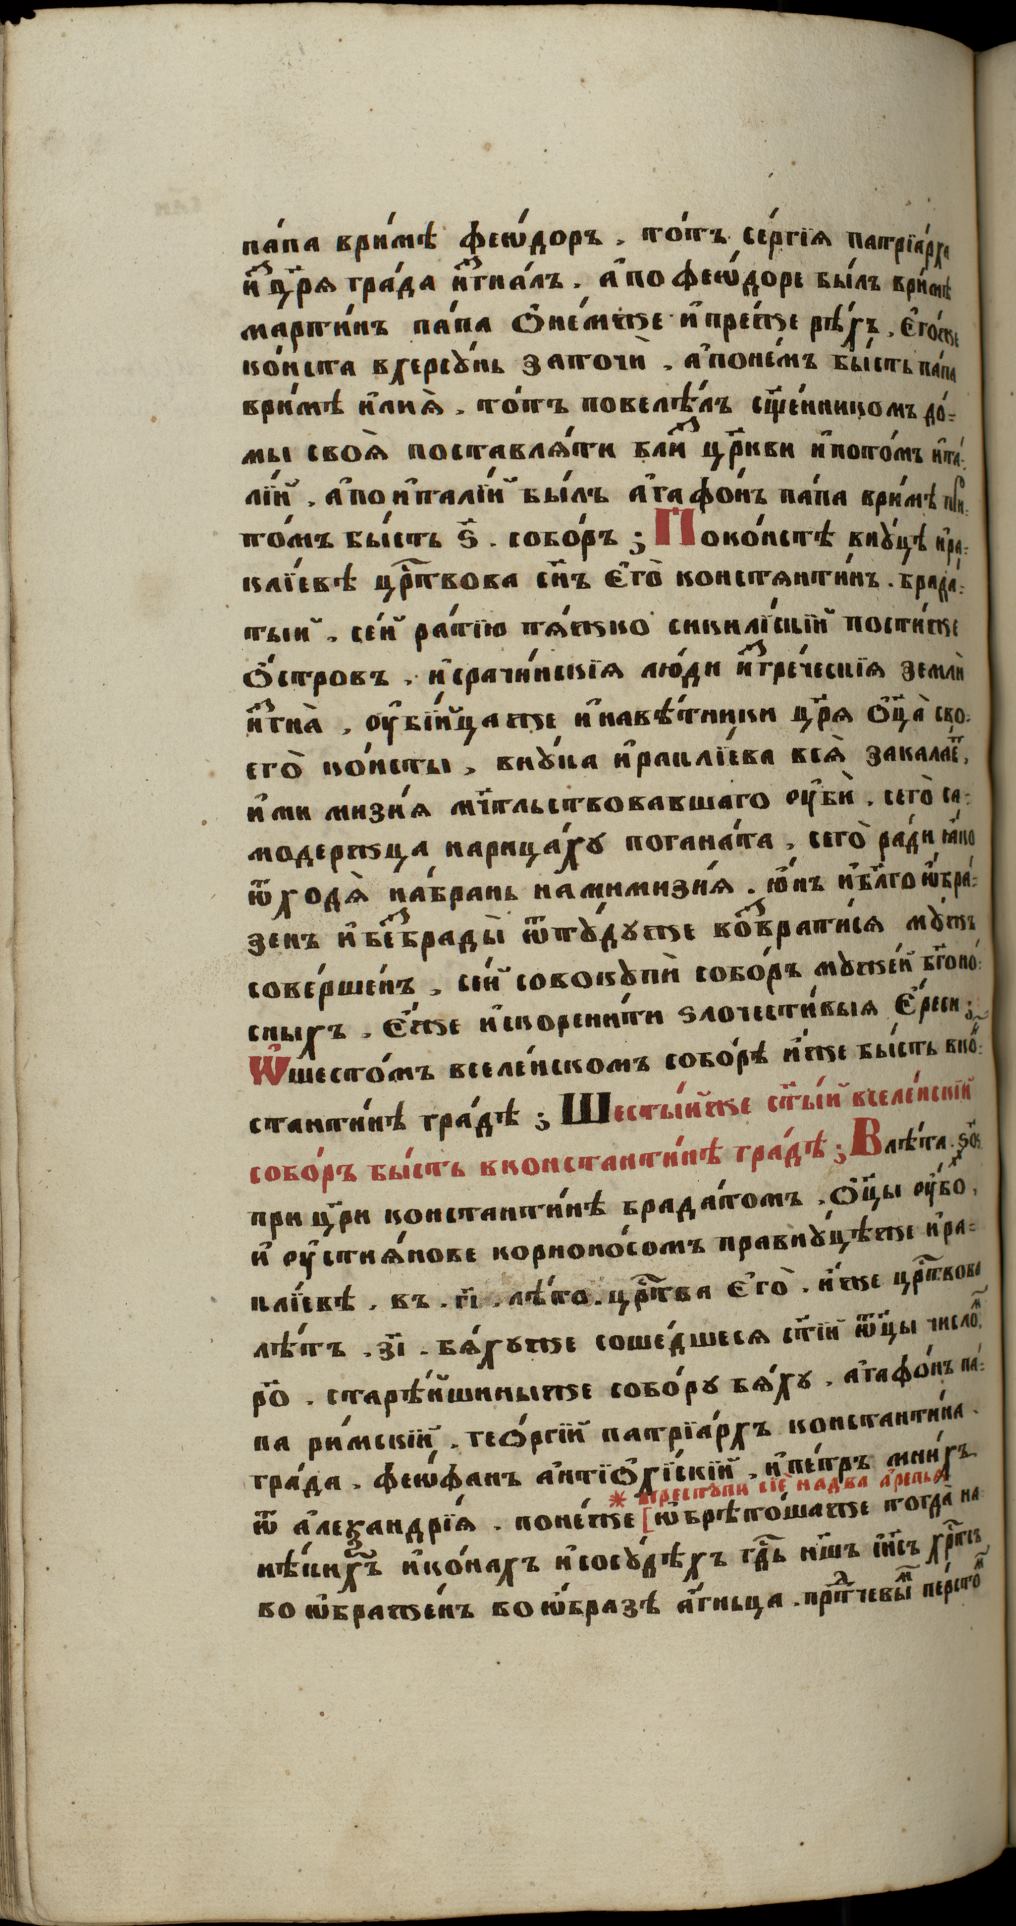 па́па ври́мѣ феѡ́доръ . то́тъ се́ргїѧ патрїа́рха
и҆зцр҃ѧ гра́да и҆згна́лъ . а҆по феѡ́доре бы́лъ ври́мѣ
марти́нъ па́па ѻ҆не́мже и҆пре́же рѣ́хъ . є҆го́же
ко́нста вхерсꙋ́нь заточѝ . а҆поне́мъ бы́сть па́па
ври́мѣ и҆лиѧ̀ . то́тъ повелѣ́лъ сщ҃е́нникомъ до́-
мы своѧ̀ поставлѧ́ти бли́з цр҃кви и҆пото́мъ и҆та́-
лїй . а҆по и҆талїй бы́лъ а҆гафо́нъ па́па ври́мѣ при-
то́мъ бы́сть ѕ҃ . собо́ръ ; Поко́нстѣ внꙋ́цѣ и҆ра-
клїевѣ црⷭ҇твова сн҃ъ є҆го̀ констѧнти́нъ . брада́-
тый . се́й ра́тїю тѧ́жко сикилі́йскїй пости́же
ѻ҆́стровъ . и҆срачи́нскїѧ лю́ди и҆згре́ческїѧ землѝ
и҆згна̀ . ᲂу҆бі́йцаже и҆навѣ́тники цр҃ѧ ѻ҆ц҃а̀ сво-
его̀ ко́нсты , внꙋ́ка и҆раклі́ева всѧ̀ закалае́т ,
и҆ми мизи́ѧ мч҃тльствовавшаго ᲂу҆бѝ . сего̀ са-
модержца нарица́хꙋ погана́та , сего̀ ра́ди ꙗ҆́ко
ѿходѧ̀ на́брань намимизи́ѧ . ю҆́нъ и҆бл҃го ѡ҆бра́-
зенъ и҆без брады̀ ѿтꙋ́дꙋже возврати́сѧ мꙋ́жъ
соверше́нъ , се́й совокꙋпѝ собо́ръ мꙋже́й бг҃оно́-
сныхъ . є҆́же и҆скорени́ти ѕлочести́выѧ є҆́реси ;
Ѡ҆шесто́мъ вселе́нскомъ собо́рѣ и҆́же бы́сть вко́н-
стантинѣ гра́дѣ ; Шесты́йже ст҃ы́й вселе́нскїй
собо́ръ бы́сть вконстанти́нѣ гра́дѣ ; Влѣ́та .
при цр҃и константи́нѣ брада́томъ . ѻ҆ц҃ы ᲂу҆бо ,
и҆ ᲂу҆стиѧ́нове корноно́сомъ правнꙋ́цѣже и҆ра-
клі́евѣ . въ . г҃і . лѣ́то . црⷭ҇тва є҆го̀ . и҆́же црⷭ҇твова
лѣ́тъ . з҃і . бѧ́хꙋже соше́дшесѧ ст҃і́и ѻ҆тц҃ы число́м
ро҃ . старѣ́йшиныже собо́рꙋ бѧ́хꙋ . а҆гафо́нъ па́-
па ри́мскїй . гео́ргїй патрїа́рхъ константи́на
гра́да . феѡ́фанъ а҆нтїѻхі́йскїй . и҆пе́тръ мни́хъ
* преступи сїѐ надва̀
ѿ а҆леѯандрі́ѧ . поне́же [ѡ҆брѣто́шаже тогда̀ на
нѣ́кихъ и҆ко́нахъ и҆сосꙋ́дѣхъ гдⷭ҇ь нш҃ъ і҆и҃съ хрⷭ҇тосъ
воѡ҆браже́нъ во ѡ҆́бразѣ а҆́гньца . прⷣтчевы́м пе́рсто́м